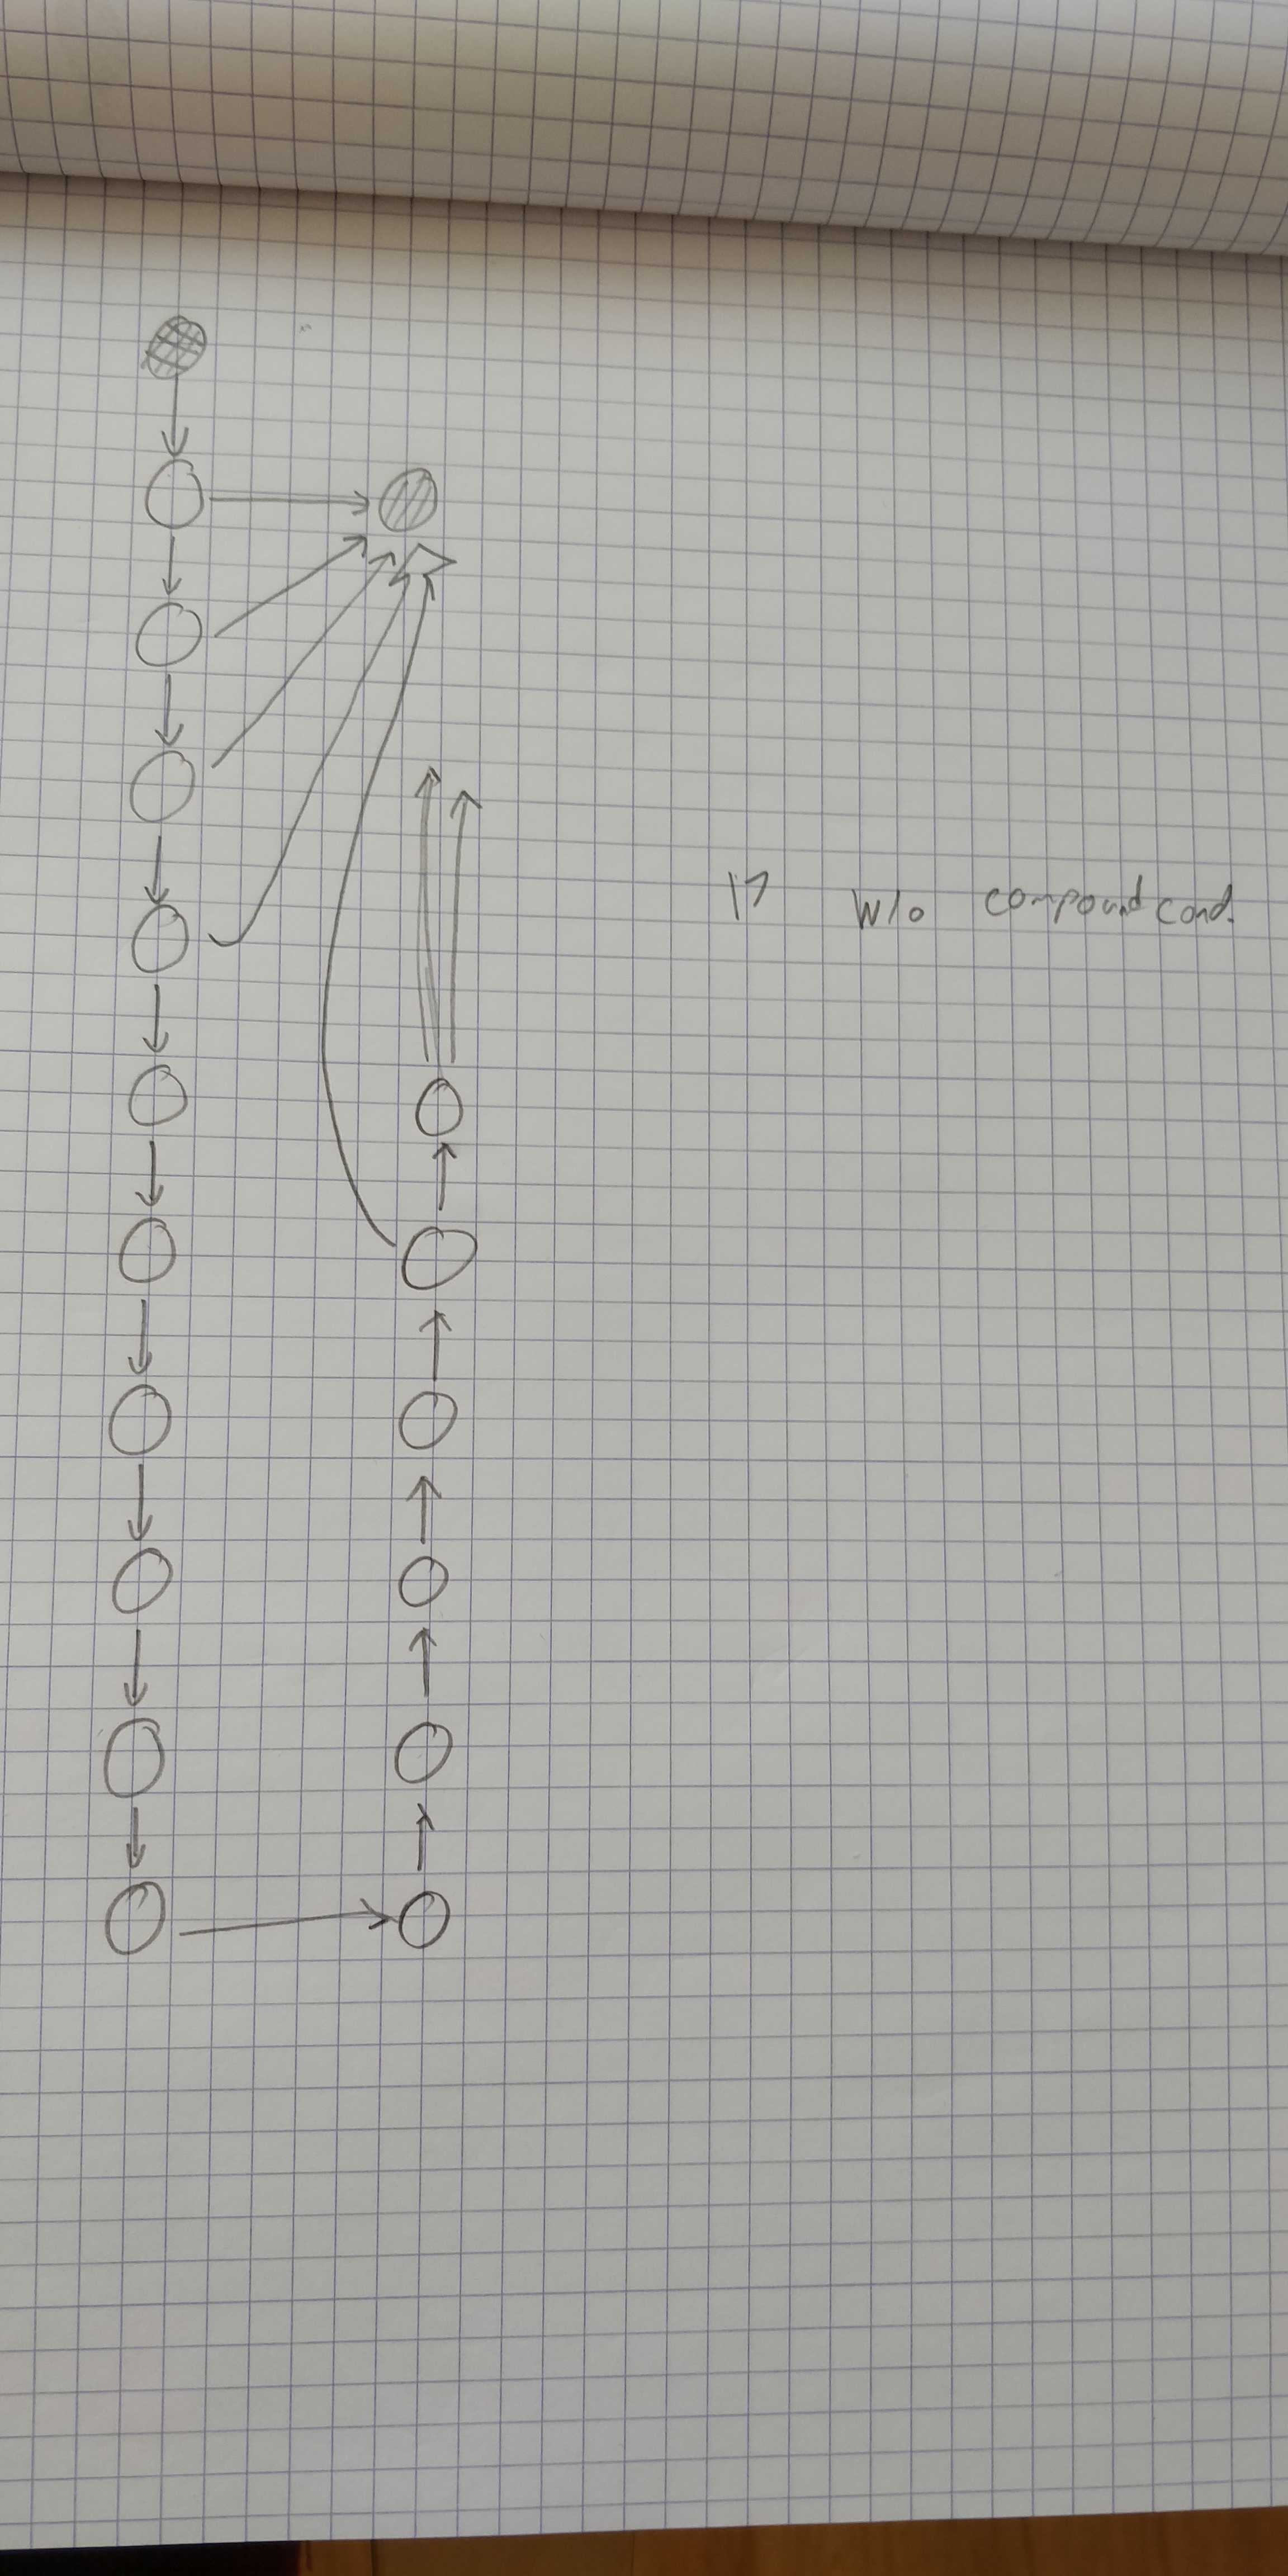 17 w/o compound cond.